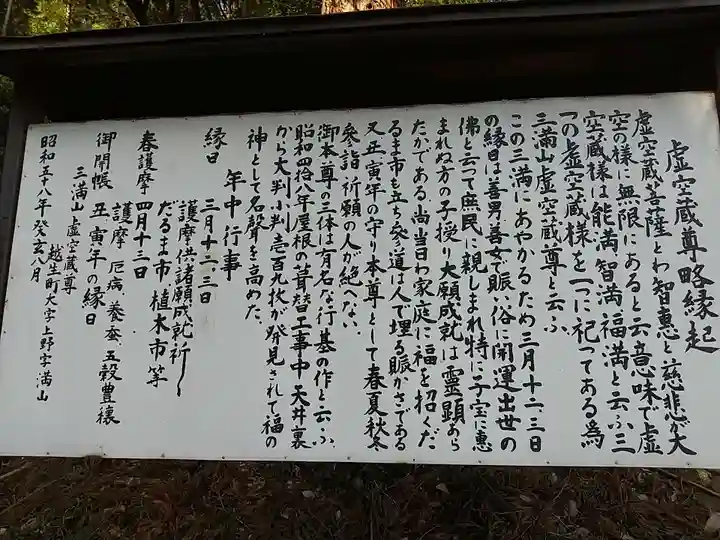 虚空蔵尊略縁起
虚空蔵菩薩とわ智恵と慈悲が大
空の様に無限にあると云う意味で虚
空蔵様は能満智満福満と云ふ三
つの虚空蔵様を一つに祀ってある為
三満山虚空蔵尊と云ふ
この三満にあやかるため三月十二、三日
の縁日は善男善女で賑い俗に開運出世の
佛と云って庶民に親しまれ特に子宝に恵
まれぬ方の子授り大願成就は霊顕あら
たかである尚当日わ家庭に福を招くだ
るま市も立ち参道は人で埋る賑かさである
又丑寅年の守り本尊として春夏秋冬
参詣祈願の人が絶へない
御本尊の一体は有名な行基の作と云ふ
昭和四拾八年屋根の葺替工事中天井裏
から大判小判壱百九枚が発見されて福の
神として名聲を高めた
年中行事
縁日 三月十二、三日
護摩供諸願成就祈り
だるま市 植木市等
春護摩 四月十三日
護摩 厄病 養蚕 五穀豊穣
御開帳 丑寅年の縁日
三満山虚空蔵尊
越生町大字上野字満山
昭和五十八年癸亥八月